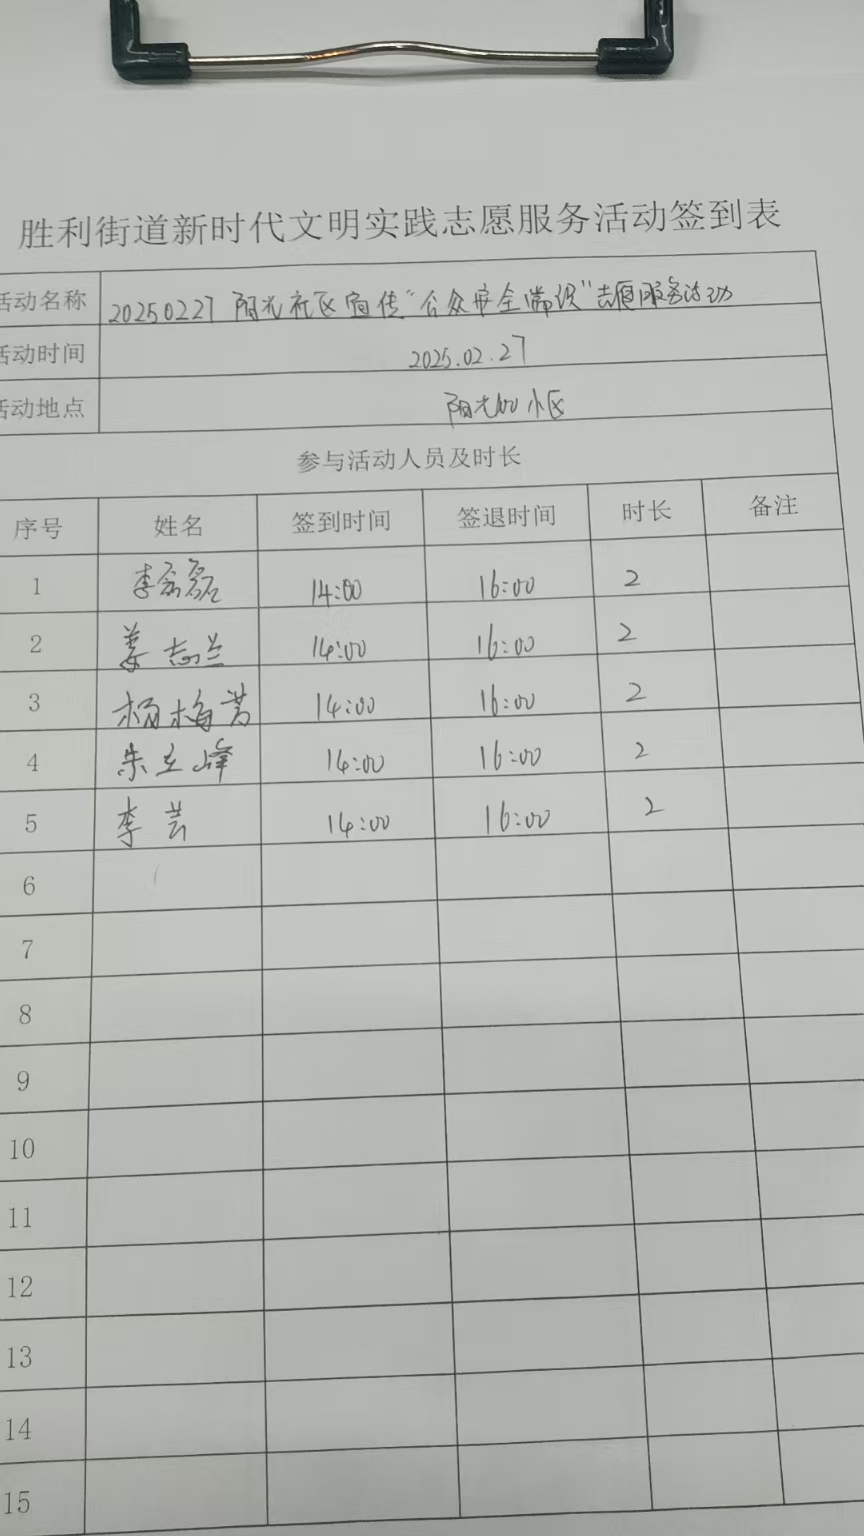 胜利街道新时代文明实践志愿服务活动签到表
活动名称 20250227 阳光社区宣传“公众安全常识”志愿服务活动
活动时间 2025.02.27
活动地点 阳光100小区
参与活动人员及时长
序号 姓名 签到时间 签退时间 时长 备注
1 14:00 16:00 2
2 姜志兰 14:00 16:00 2
3 杨梅芳 14:00 16:00 2
4 朱立峰 14:00 16:00 2
5 李芸 14:00 16:00 2
6
7
8
9
10
11
12
13
14
15